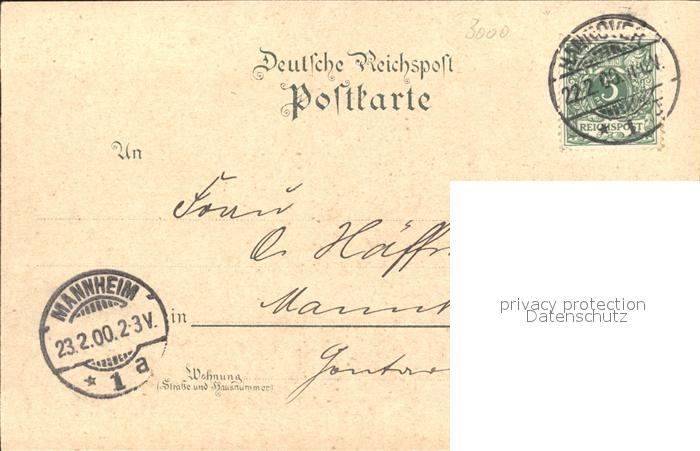 3000
Deutsche Reichspost
Postkarte
HANNOVER
22.2.00.
5
REICHSPOST
1
An
Frau
in
MANNHEIM
23.2.00.2-3V.
* 1 a
Wohnung
(Straße und Hausnummer)
privacy protection
Datenschutz